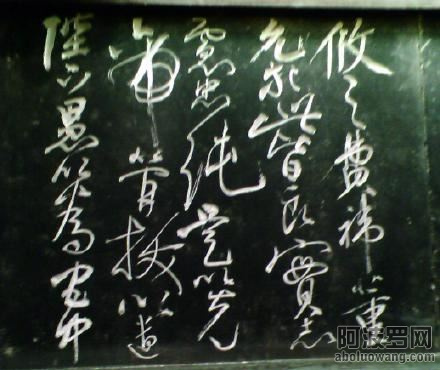 攸之費禕董
允等此皆良實志
慮忠純是以先
帝簡拔以遺
陛下愚以為宮中
阿波罗网
aboluowang.com